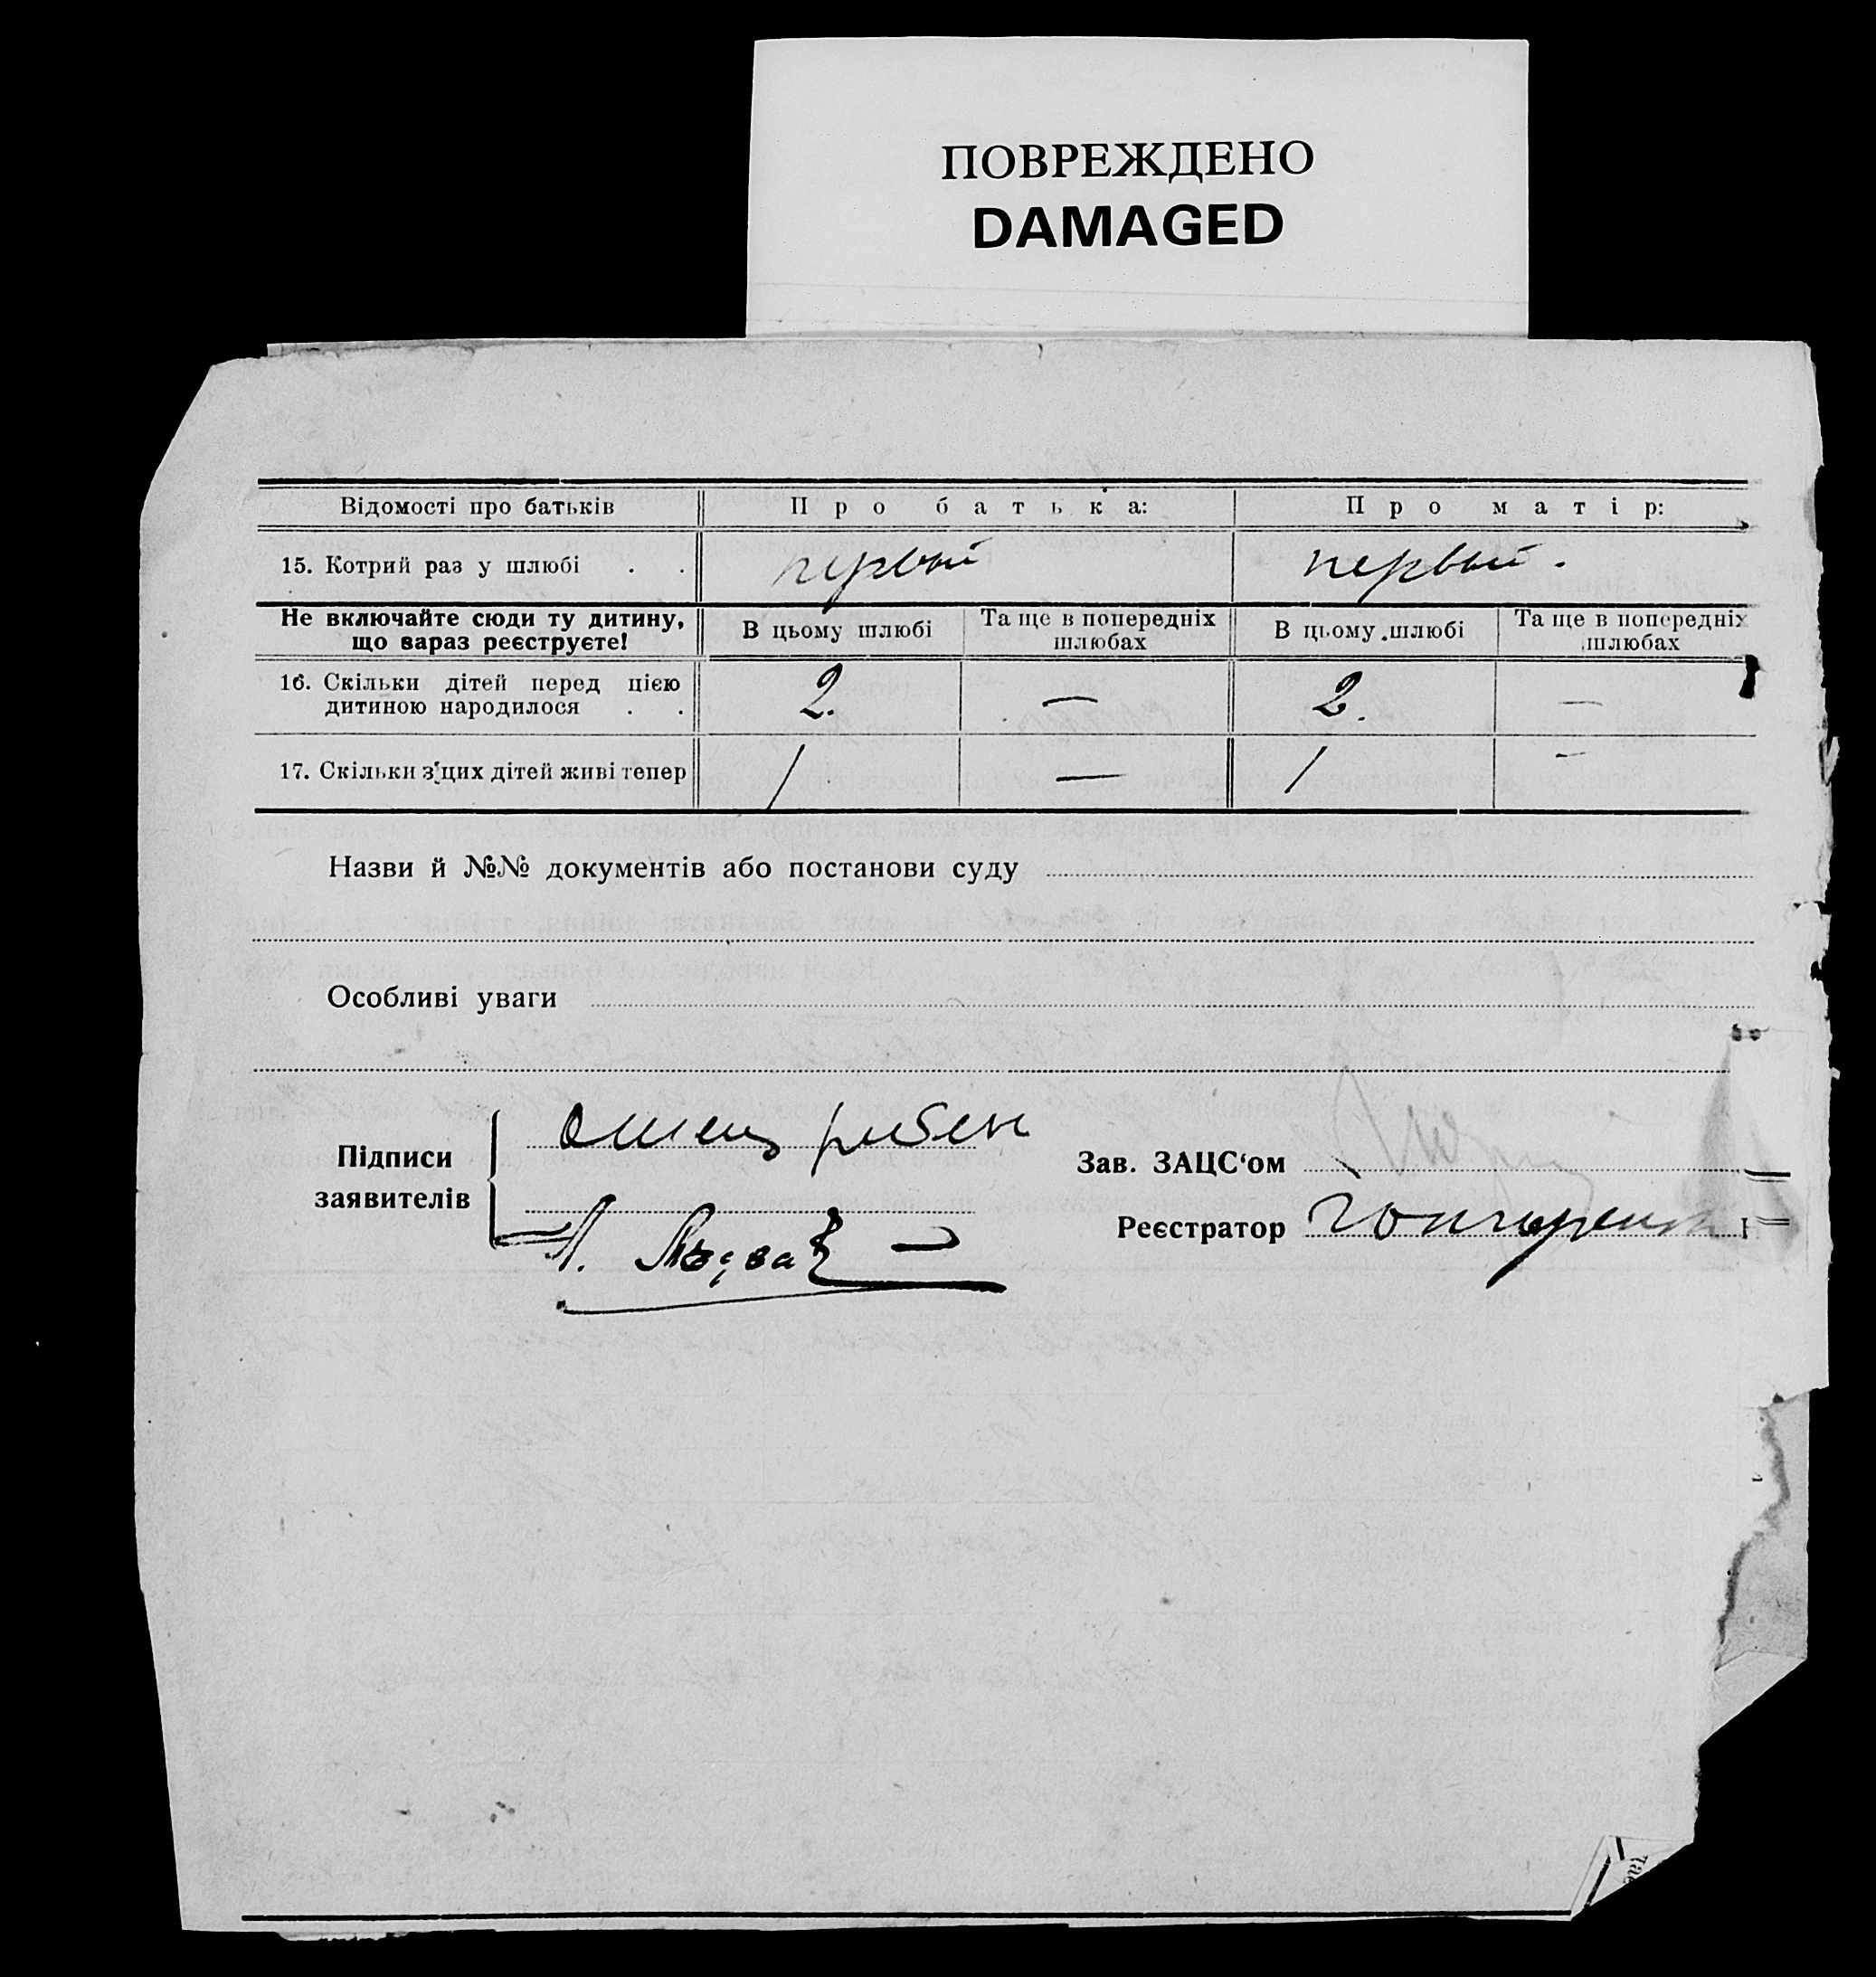 ПОВРЕЖДЕНО
DAMAGED
Відомості про батьків Про батька: Про матір:
15. Котрий раз у шлюбі . . первый первый.
Не включайте сюди ту дитину, що вараз реєструєте! В цьому шлюбі Та ще в попередніх шлюбах В цьому шлюбі Та ще в попередніх шлюбах
16. Скільки дітей перед цією дитиною народилося . . 2. — 2. —
17. Скільки з'цих дітей живі тепер / — / —
Назви й №№ документів або постанови суду
Особливі уваги
Підписи заявителів
отец ребен
Зав. ЗАЦС'ом
Реєстратор Гончаренко